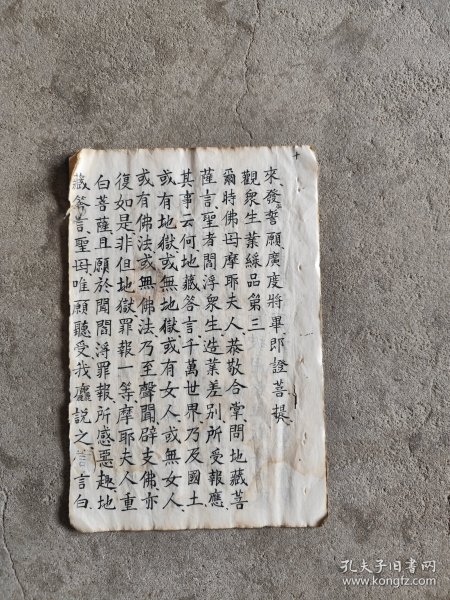 十
來發誓願廣度將畢即證菩提
觀衆生業緣品第三
爾時佛母摩耶夫人恭敬合掌問地藏菩
薩言聖者閻浮衆生造業差別所受報應
其事云何地藏答言千萬世界乃及國土
或有地獄或無地獄或有女人或無女人
或有佛法或無佛法乃至聲聞辟支佛亦
復如是非但地獄罪報一等摩耶夫人重
白菩薩且願於聞閻浮罪報所感惡趣地
藏答言聖母唯願聽受我麤説之言白
孔夫子旧书网
www.kongfz.com